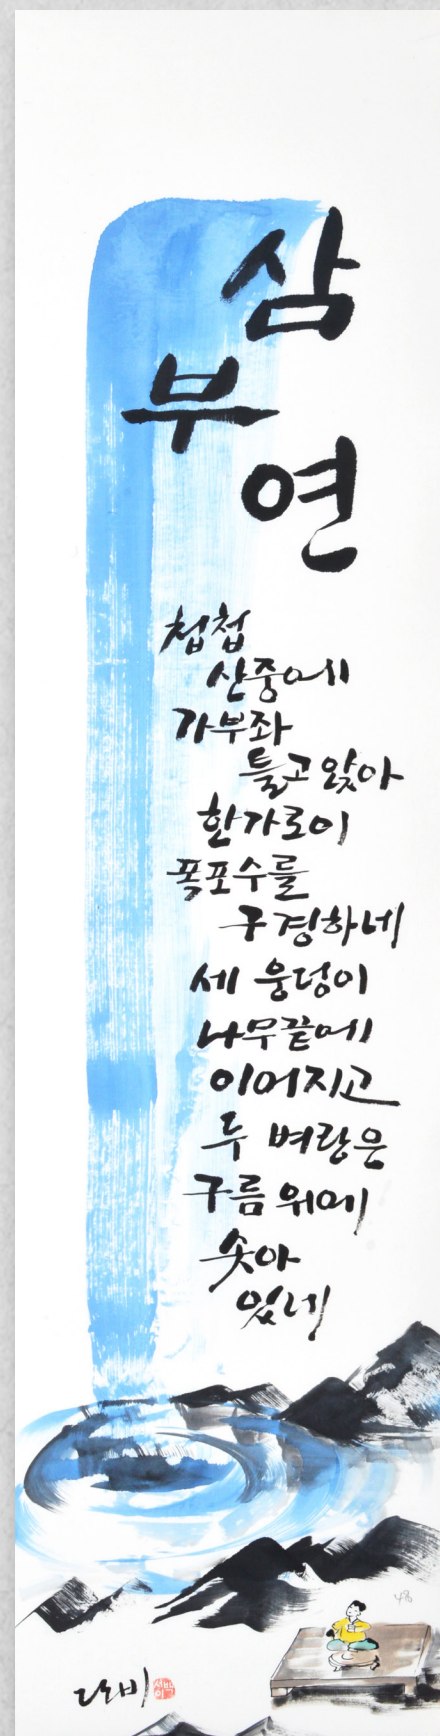 삼
부
연
첩첩
산중에
가부좌
틀고 앉아
한가로이
폭포수를
구경하네
세 웅덩이
나무끝에
이어지고
두 벼랑은
구름 위에
솟아
있네